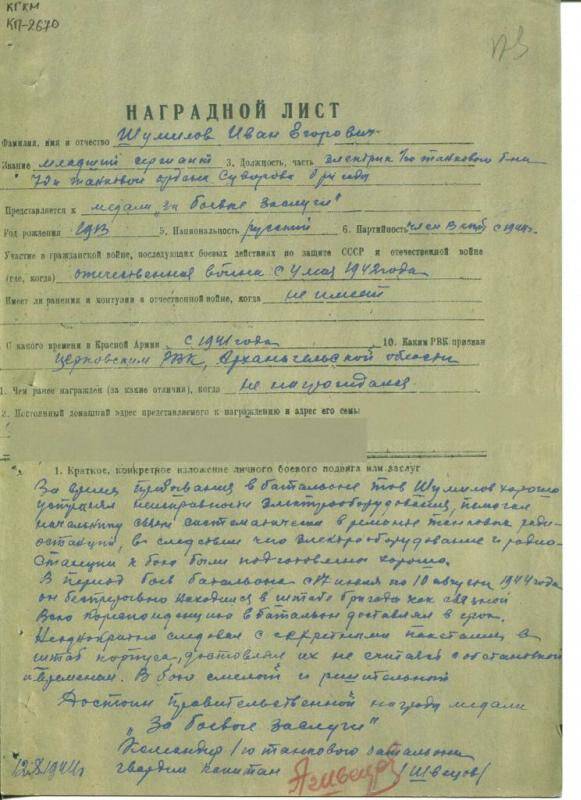 КГКМ
КП-2670
НАГРАДНОЙ ЛИСТ
Фамилия, имя и отчество Шумилов Иван Егорович
Звание младший сержант 3. Должность, часть электрик 1го танкового б-на
танковой ордена Суворова бригады
Представляется к медали "За боевые заслуги"
Год рождения 1913 5. Национальность русский 6. Партийность член ВКПб с 1944г.
Участие в гражданской войне, последующих боевых действиях по защите СССР и отечественной войне
(где, когда) отечественная война с 4 мая 1942 года
Имеет ли ранения и контузии в отечественной войне, когда не имеет
С какого времени в Красной Армии с 1941 года 10. Каким РВК призван
Церковским РВК, Архангельской области
1. Чем ранее награжден (за какие отличия), когда не награждался
2. Постоянный домашний адрес представляемого к награждению и адрес его семьи
1. Краткое, конкретное изложение личного боевого подвига или заслуг
За время пребывания в батальоне тов Шумилов хорошо
устранял неисправности электрооборудования, помогал
начальнику связи систематически в ремонте танковых радио-
станций, в следствие чего электрооборудование и радио-
станции к бою были подготовлены хорошо.
В период боев батальона с 17 июня по 10 август 1944 года
он беспрерывно находился в штабе бригады как связной
Всю корреспонденцию в батальон доставлял в срок.
Неоднократно следовал с секретными пакетами в
штаб корпуса, доставлял их не считаясь с обстановкой
и временем. В бою смелый и решительный
Достоин правительственной награды медали
"За боевые заслуги"
Командир 1го танкового батальона
12.8.1944г гвардии капитан /Швецов/